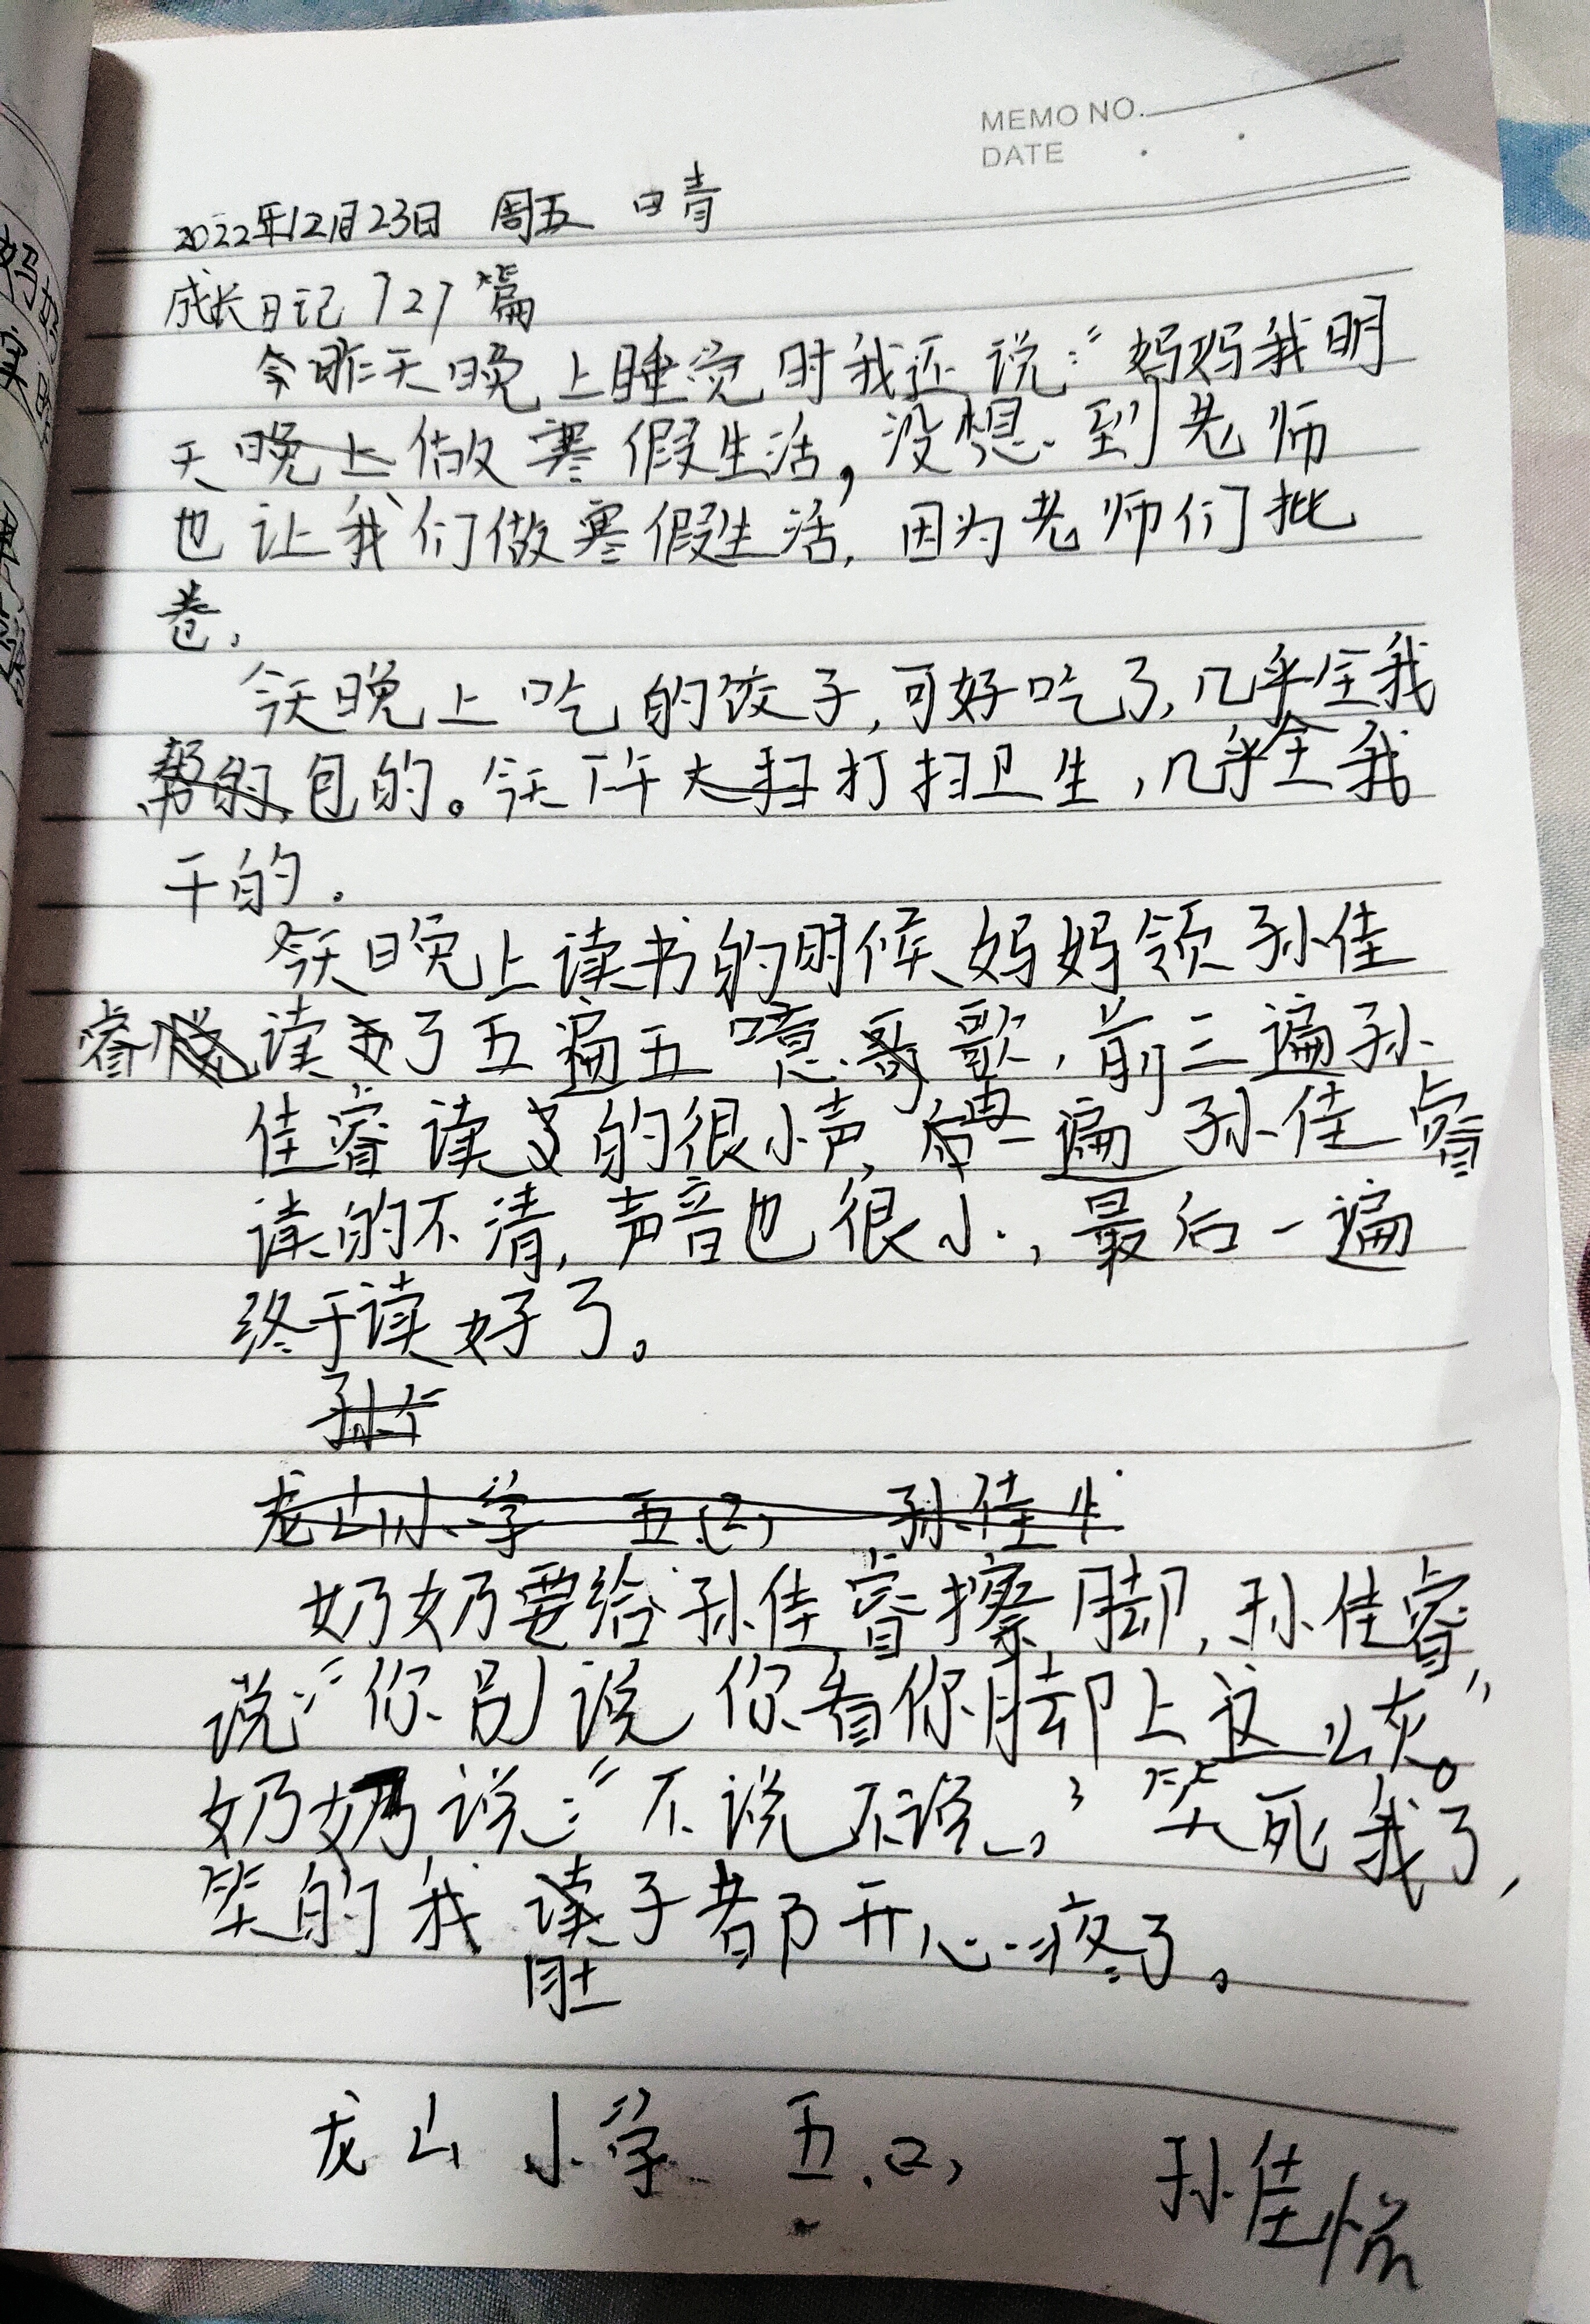 MEMO NO.
DATE
2022年12月23日 周五 晴
成长日记727篇
昨天晚上睡觉时我还说:“妈妈我明
天晚上做寒假生活,没想到老师
也让我们做寒假生活,因为老师们批
卷,
今天晚上吃的饺子,可好吃了,几乎全我
包的。今天下午大扫打扫卫生,几乎全我
干的.
今天晚上读书的时候妈妈领孙佳
睿读了五遍五噫歌,前三遍孙
佳睿读的很小声,再一遍孙佳睿
读的不清,声音也很小,最后一遍
终于读好了。
孙
龙山小学 五(2) 孙佳
奶奶要给孙佳睿擦脚,孙佳睿
说:“你别说你看你脚上这么灰。”
奶奶说:“不说不说。”笑死我了,
笑的我肚子都开心疼了。
龙山小学 五(2) 孙佳悦